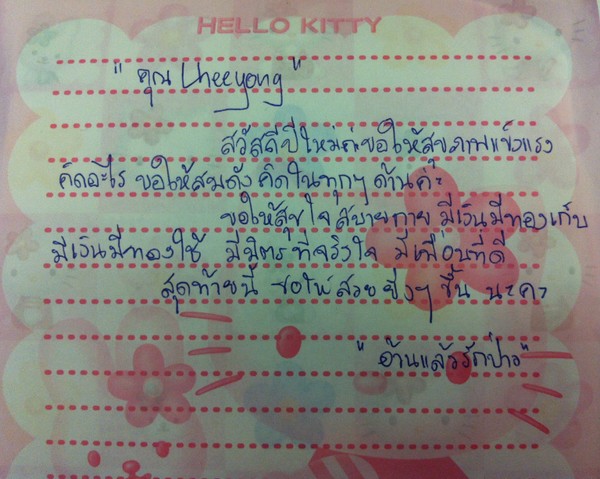 HELLO KITTY
"คุณ Uheeyong"
สวัสดีปีใหม่ค่ะขอให้สุขภาพแข็งแรง
คิดอะไร ขอให้สมดังคิดในทุกๆ ด้านค่ะ
ขอให้สุขใจ สบายกาย มีเงินมีทองเก็บ
มีเงินมีทองใช้ มีมิตรที่จริงใจ มีเพื่อนที่ดี
สุดท้ายนี้ ขอให้สวยยิ่งๆ ขึ้น นะคะ
"อ่านแล้วรักป่าว"